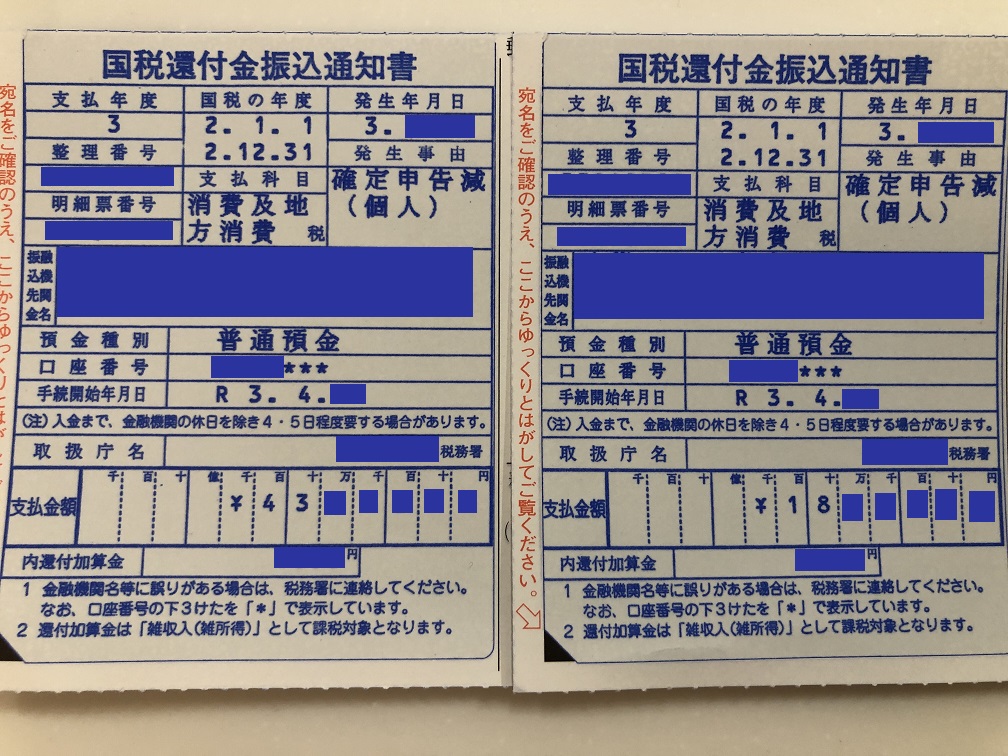 国税還付金振込通知書
支払年度
国税の年度
発生年月日
3
2. 1. 1
3.
整理番号
2.12.31
発生事由
支払科目
確定申告減
(個人)
明細票番号
消費及地
方消費 税
振融
込機
先関
金名
預金種別
普通預金
口座番号
***
手続開始年月日
R 3. 4.
(注)入金まで、金融機関の休日を除き4・5日程度要する場合があります。
取扱庁名
税務署
支払金額
千 百 十 億 千 百 十 万 千 百 十 円
¥ 4 3
内還付加算金
円
1 金融機関名等に誤りがある場合は、税務署に連絡してください。
なお、口座番号の下3けたを「*」で表示しています。
2 還付加算金は「雑収入(雑所得)」として課税対象となります。
宛名をご確認のうえ、ここからゆっくりとはが
国税還付金振込通知書
支払年度
国税の年度
発生年月日
3
2. 1. 1
3.
整理番号
2.12.31
発生事由
支払科目
確定申告減
(個人)
明細票番号
消費及地
方消費 税
振融
込機
先関
金名
預金種別
普通預金
口座番号
***
手続開始年月日
R 3. 4.
(注)入金まで、金融機関の休日を除き4・5日程度要する場合があります。
取扱庁名
税務署
支払金額
千 百 十 億 千 百 十 万 千 百 十 円
¥ 1 8
内還付加算金
円
1 金融機関名等に誤りがある場合は、税務署に連絡してください。
なお、口座番号の下3けたを「*」で表示しています。
2 還付加算金は「雑収入(雑所得)」として課税対象となります。
宛名をご確認のうえ、ここからゆっくりとはがしてご覧ください。